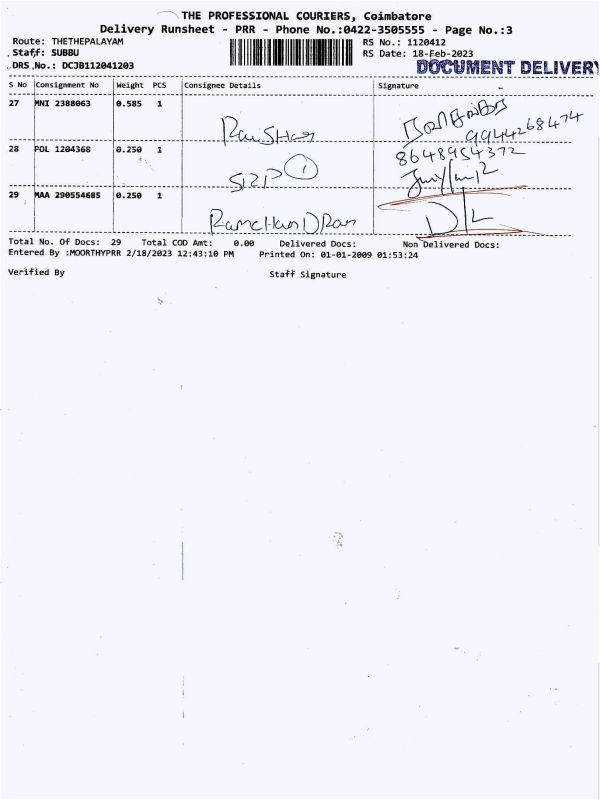 THE PROFESSIONAL COURIERS, Coimbatore
Delivery Runsheet - PRR - Phone No.:0422-3505555 - Page No.:3
Route: THETHEPALAYAM RS No.: 1120412
Staff: SUBBU RS Date: 18-Feb-2023
DRS No.: DCJB112041203 DOCUMENT DELIVERY
S No Consignment No Weight PCS Consignee Details Signature
27 MNI 2388063 0.585 1
9944268474
28 POL 1204368 0.250 1 8648954372
1
29 MAA 290554685 0.250 1
RamcHanDRan D/L
Total No. Of Docs: 29 Total COD Amt: 0.00 Delivered Docs: Non Delivered Docs:
Entered By :MOORTHYPRR 2/18/2023 12:43:10 PM Printed On: 01-01-2009 01:53:24
Verified By Staff Signature